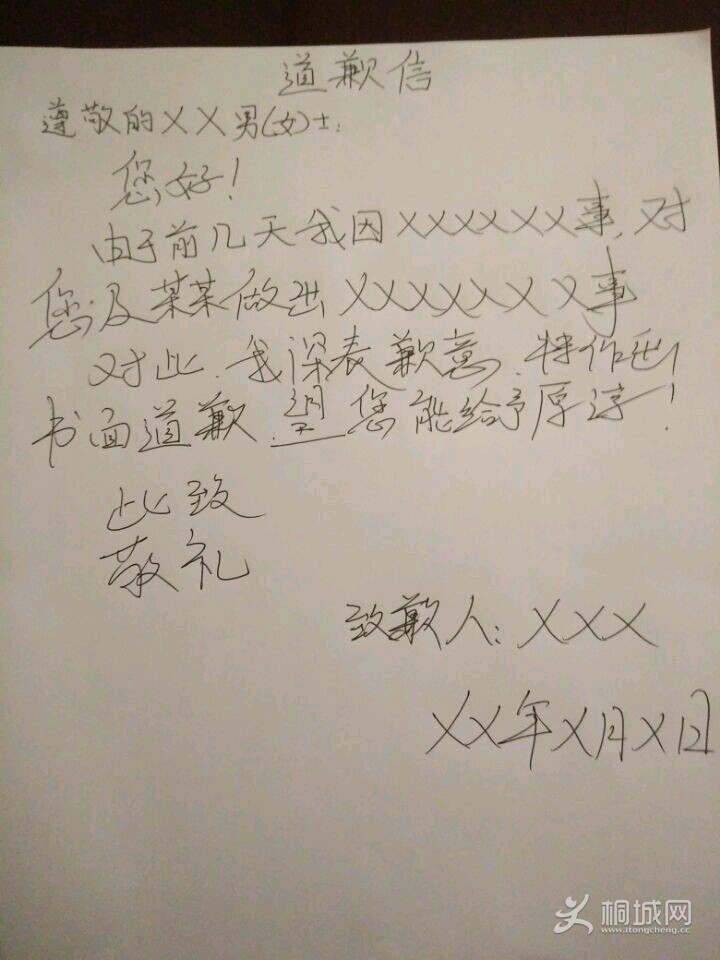 道歉信
尊敬的XX男(女)士:
您好!
由于前几天我因XXXXXX事,对
您及某某做出XXXXXXX事
对此,我深表歉意,特作出
书面道歉,望您能给予厚谅!
此致
敬礼
致歉人:XXX
XX年X月X日
桐城网
www.itongcheng.cc